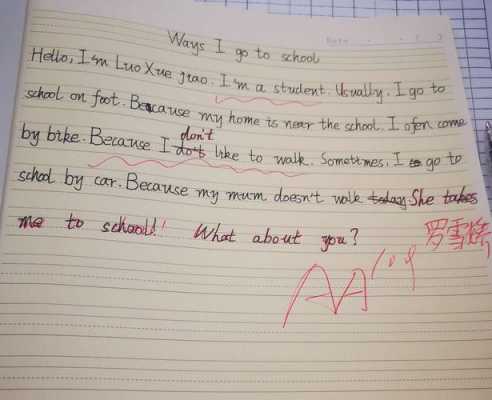 Ways I go to school
Hello, I'm Luo Xue jiao. I'm a student. Usually, I go to
school on foot. Because my home is near the school. I ofen come
don't
by bike. Because I do't like to walk. Sometimes, I to go to
school by car. Because my mum doesn't walk today. She takes
me to school! What about you?
AA